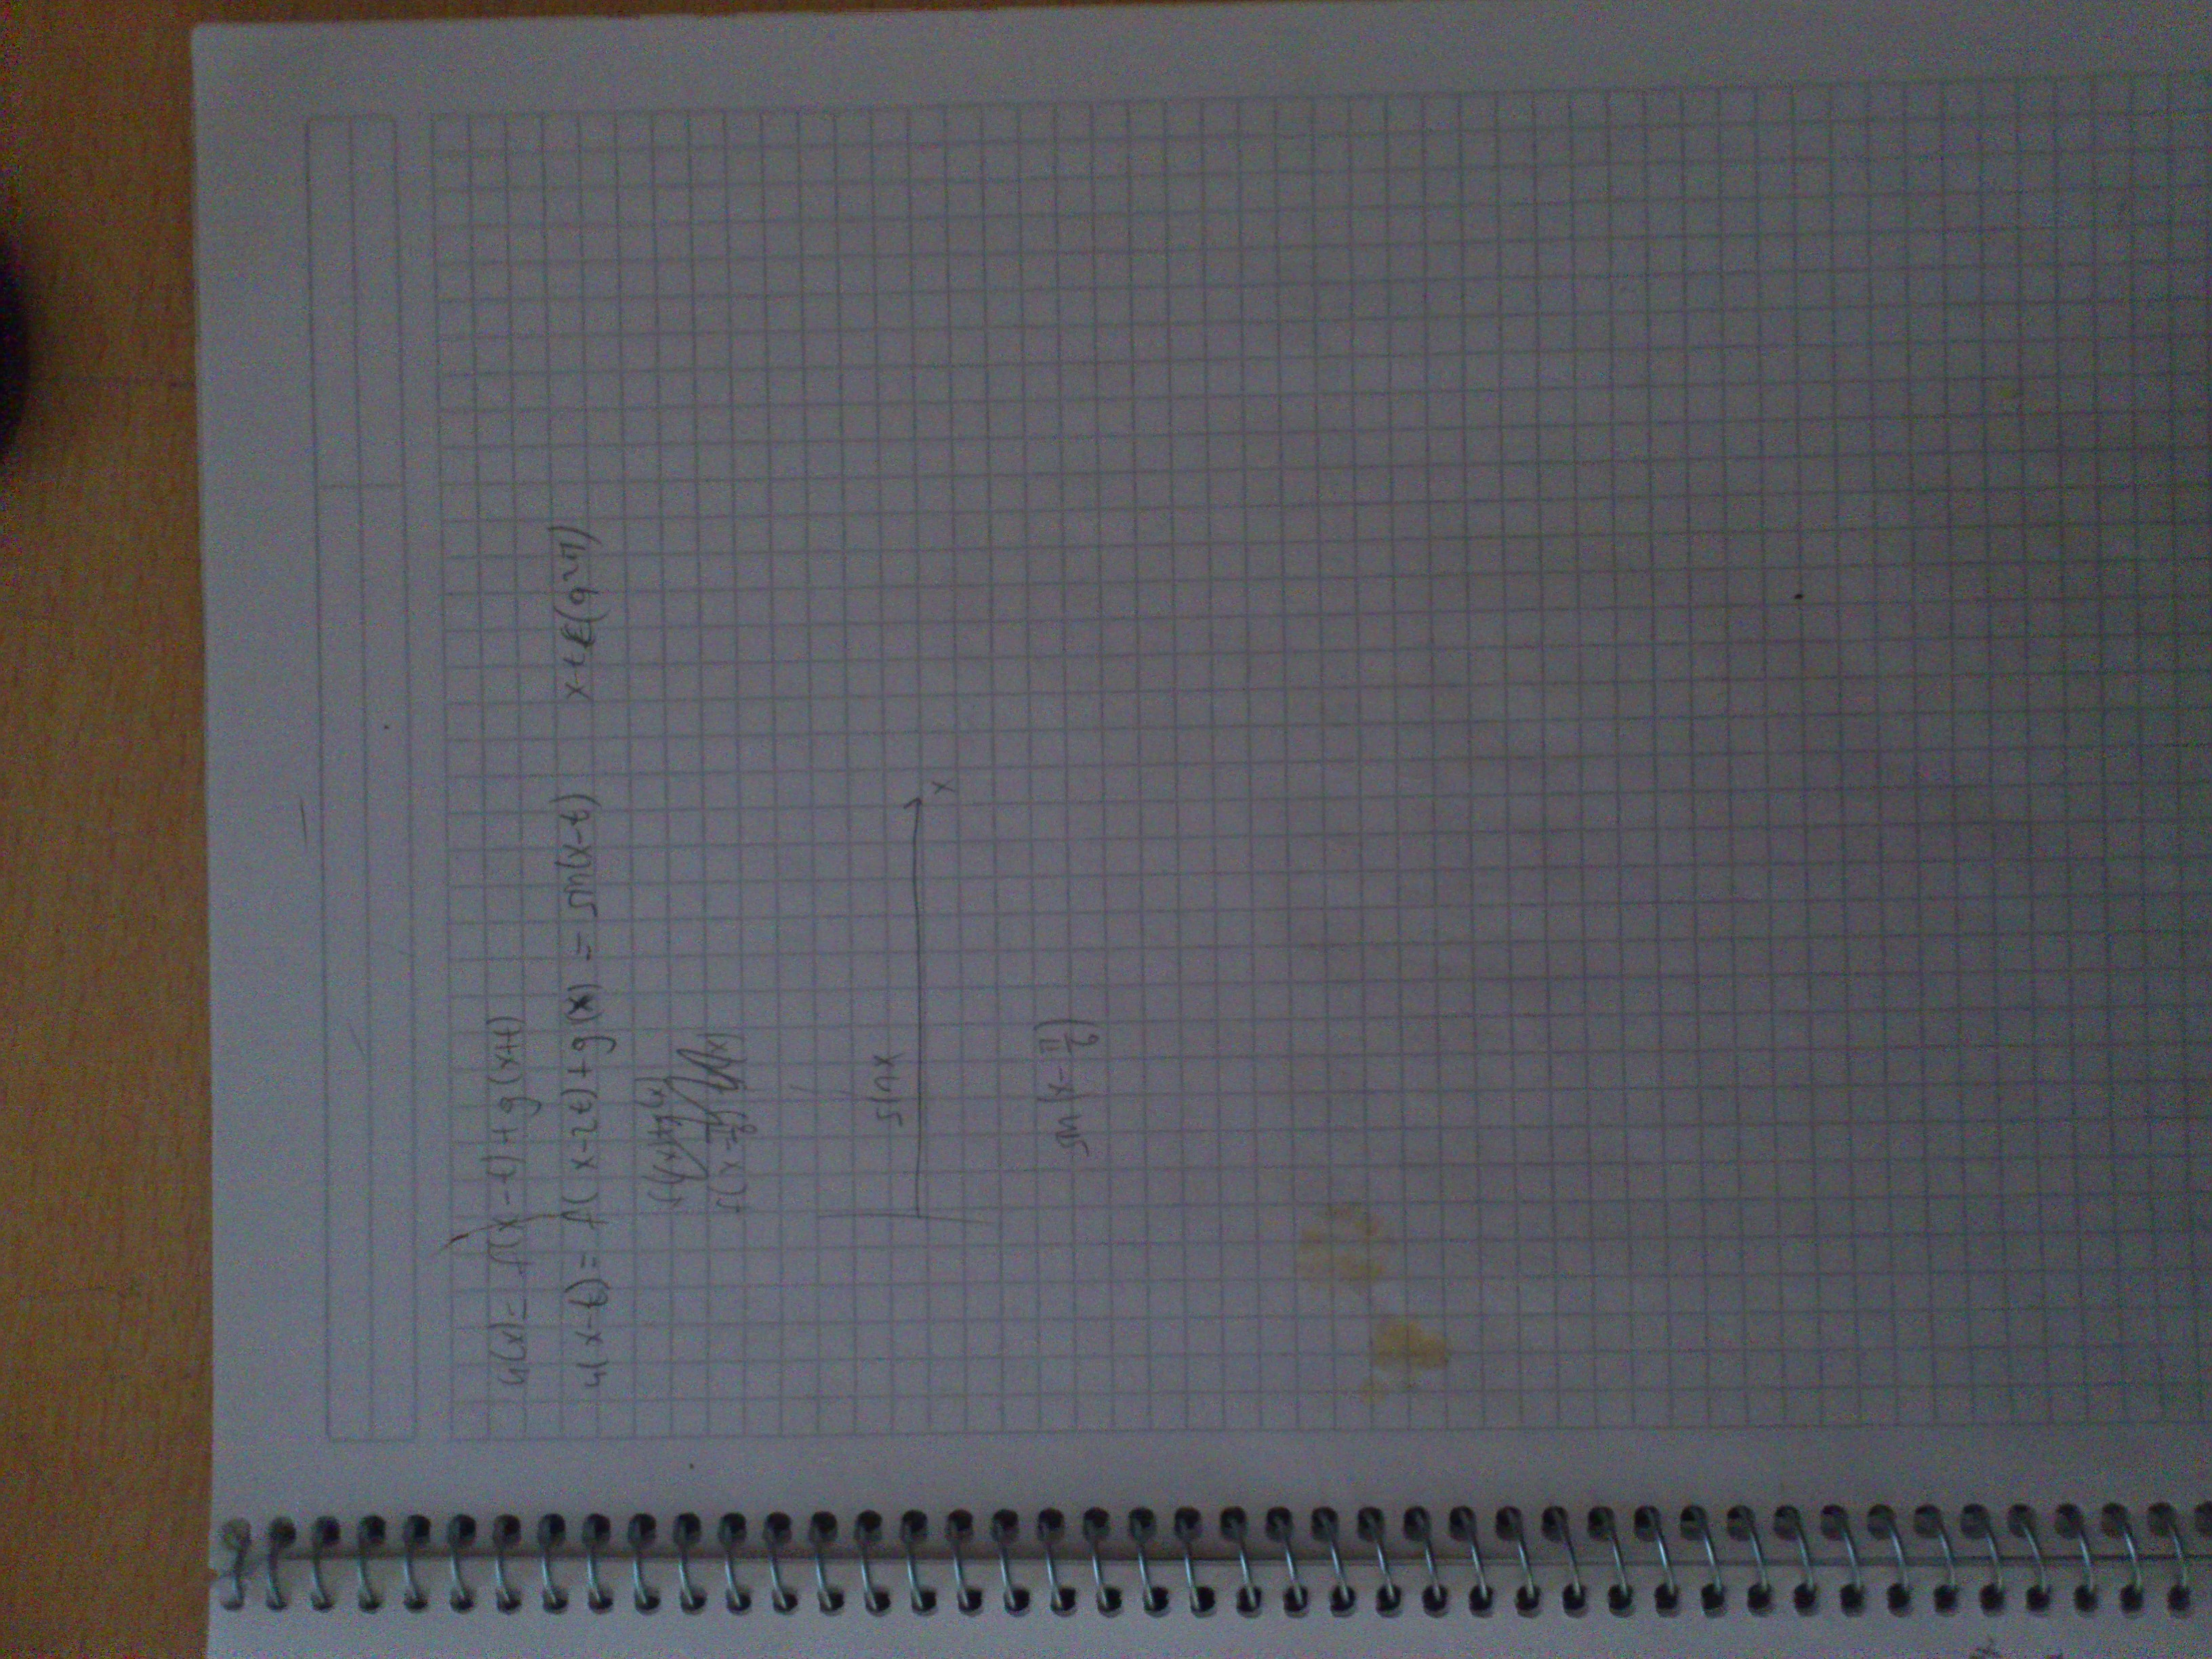 u(x)= f(x-t)+g(x+t)
u(x-t)= f(x-2t)+g(x) = sin(x-t) x-t∈(0,2π)
f(x)+g(x)
f(x-π/6)
sinx
x
sin(x-π/6)